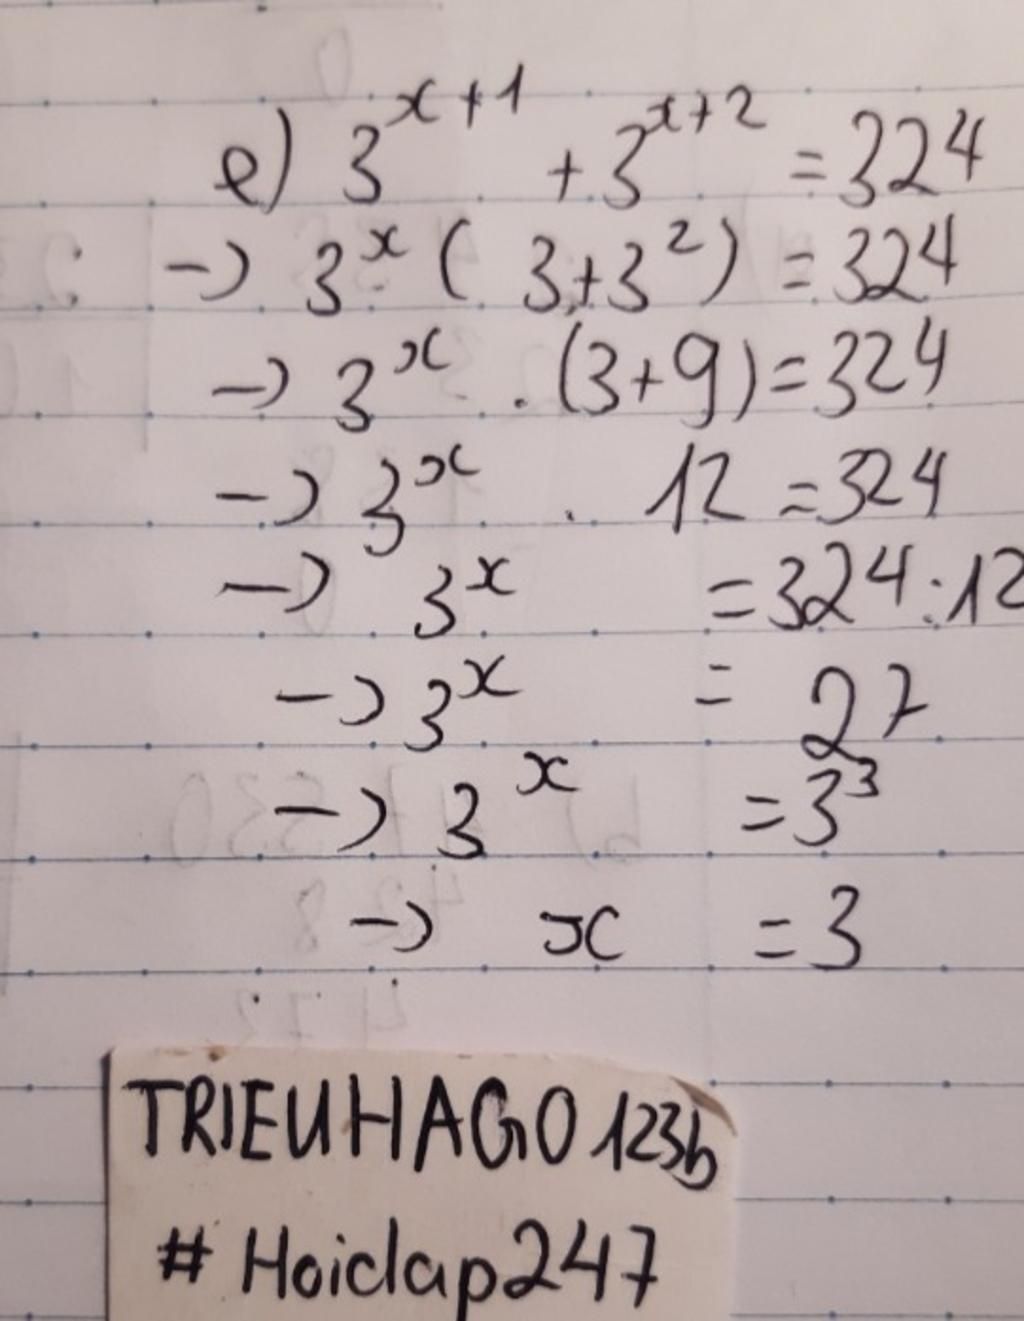 e) 3^{x+1} + 3^{x+2} = 324
-> 3^x ( 3+3^2) = 324
-> 3^x . (3+9) = 324
-> 3^x . 12 = 324
-> 3^x = 324:12
-> 3^x = 27
-> 3^x = 3^3
-> x = 3
TRIEUHAGO123b
# Hoidap247